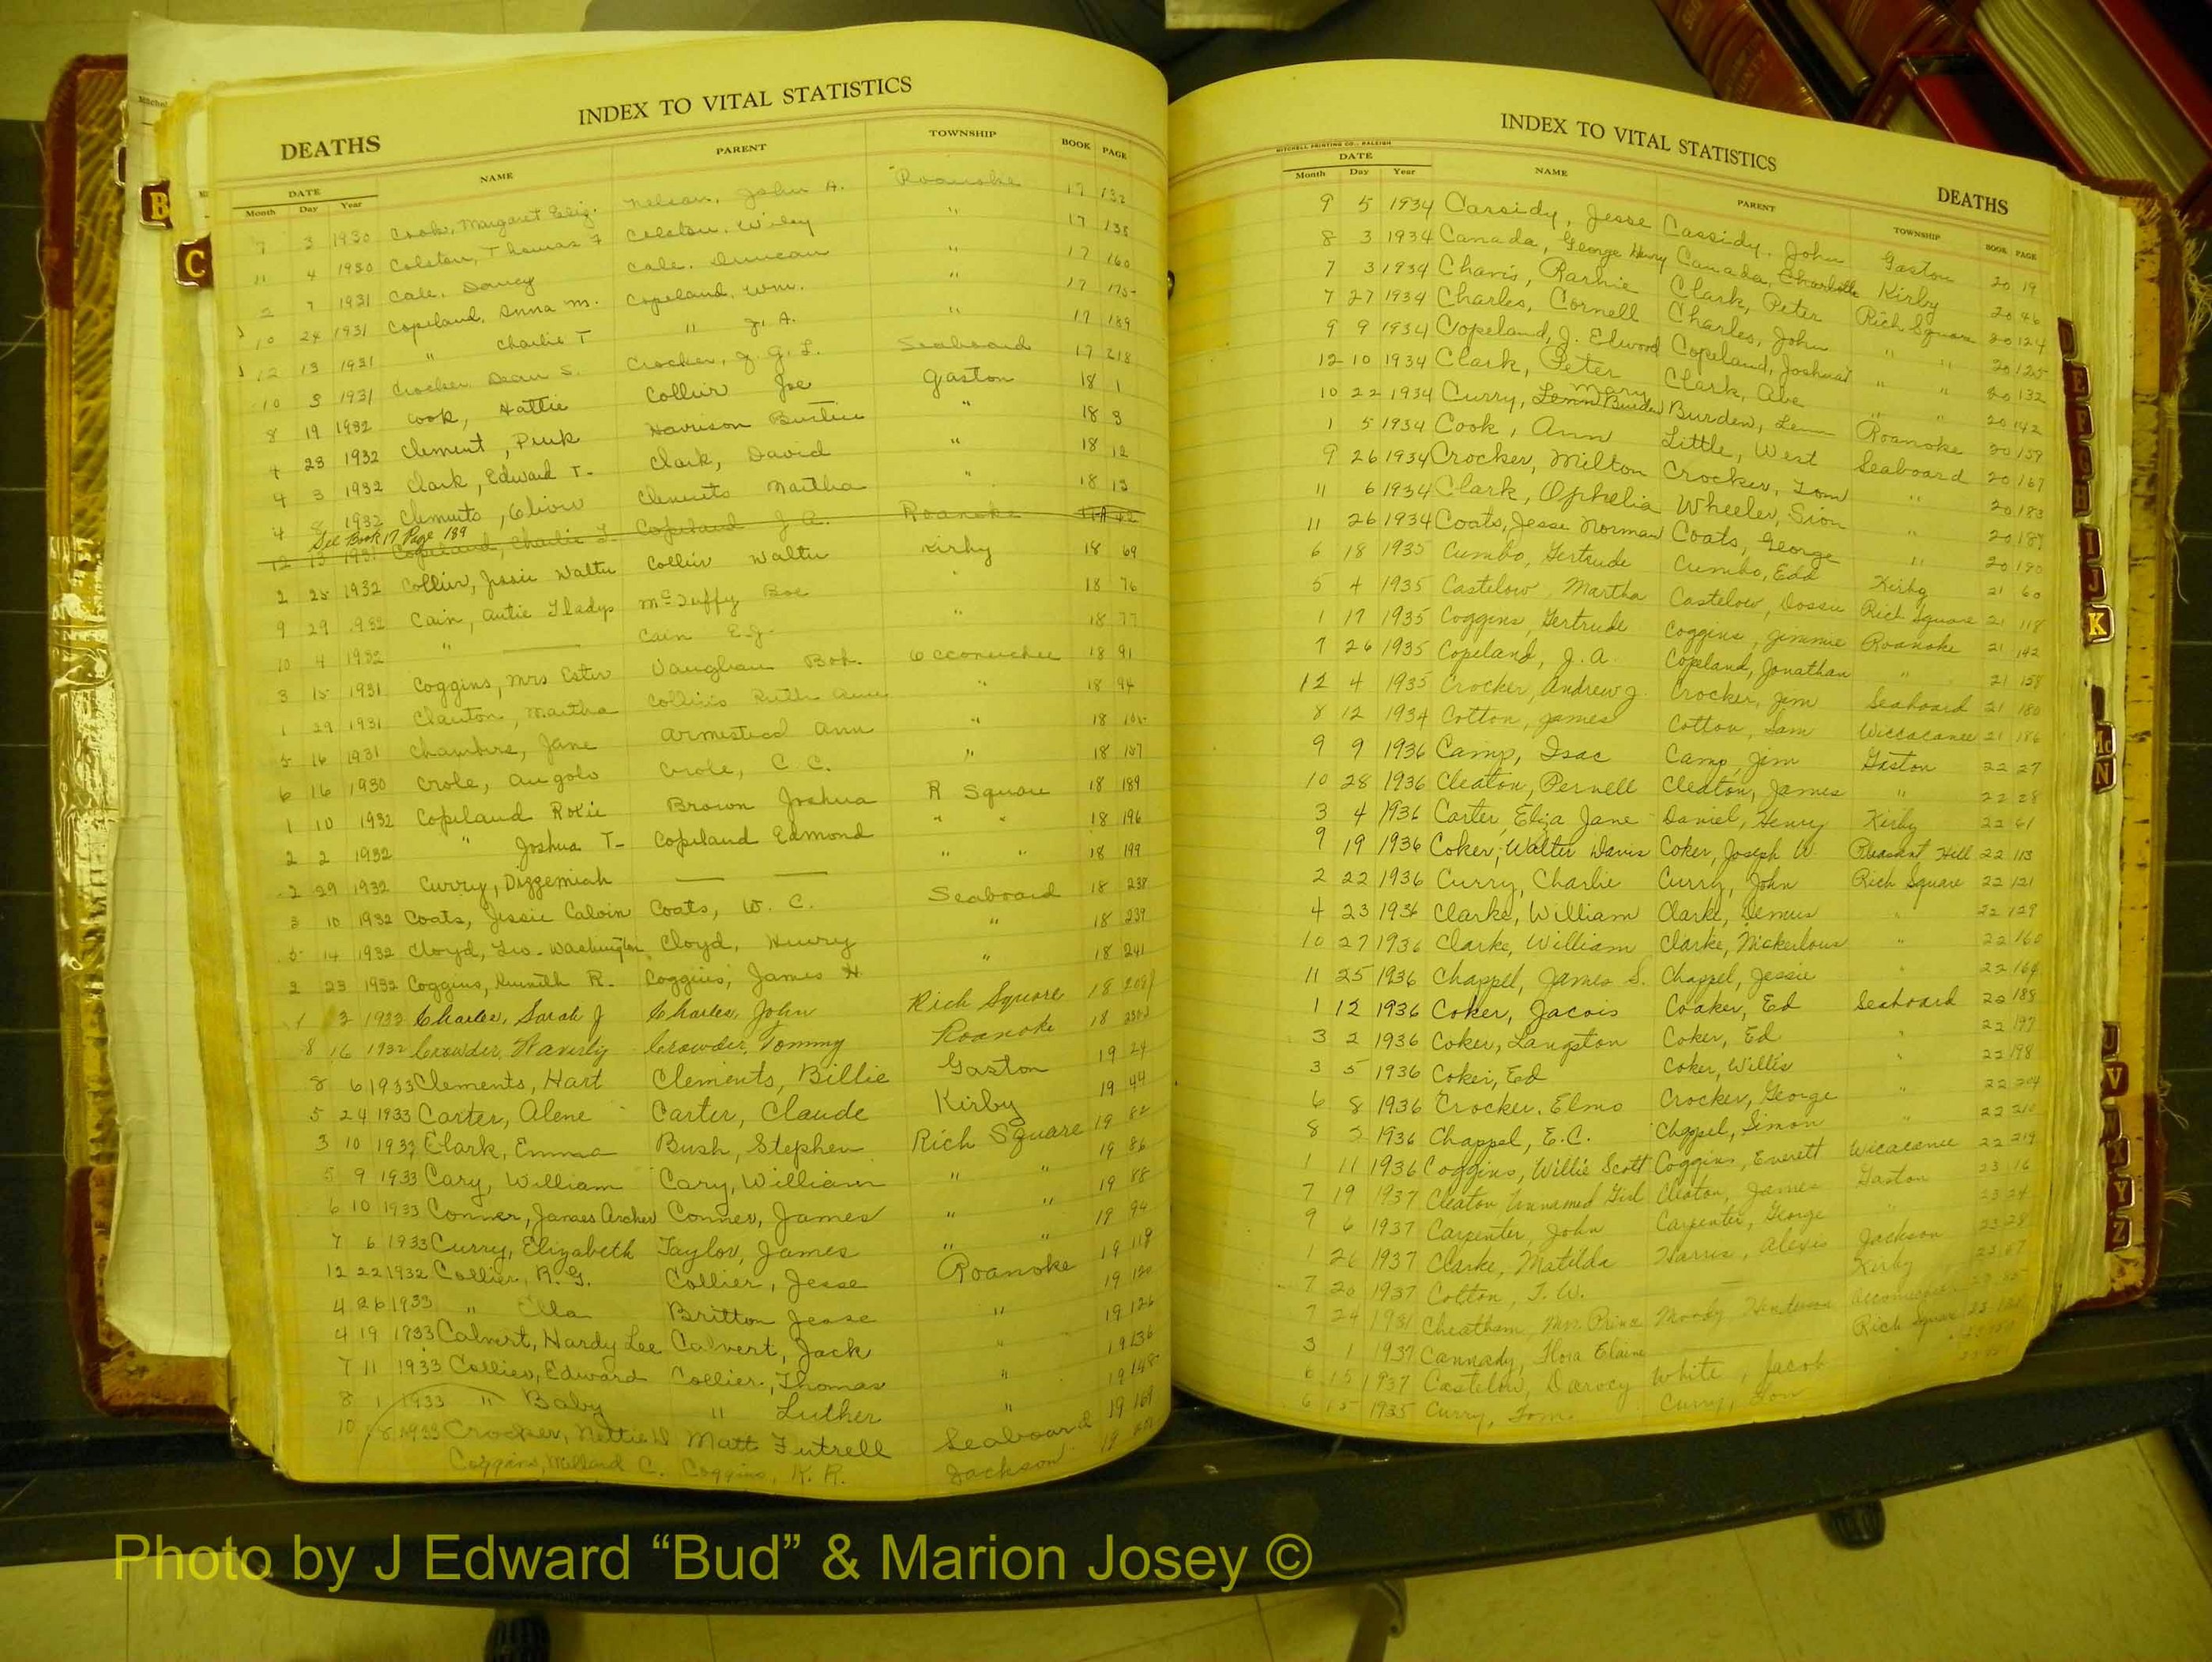 INDEX TO VITAL STATISTICS
DEATHS
DATE NAME PARENT TOWNSHIP BOOK PAGE
Month Day Year
7 3 1930 Cook, Margaret Eliz. Nelson, John A. Roanoke 17 132
11 4 1930 Colston, Thomas F Colston, Wiley " 17 138
2 7 1931 Cale, Dancy Cale, Duncan " 17 160
10 24 1931 Copeland, Anna M. Copeland, Wm. " 17 175
12 13 1931 " Charlie T " J. A. " 17 189
10 3 1931 Crocker Dean S. Crocker, J. G. L. Seaboard 17 218
8 19 1932 Cook, Hattie Collier Joe Gaston 18 1
4 23 1932 Clement, Pink Harrison Burtice " 18 3
4 3 1932 Clark, Edward T- Clark, David " 18 12
4 8 1932 Clements, Clivir Clements Martha " 18 13
See Book 17 Page 189
12 13 1931 Copeland, Charlie T. Copeland J A. Roanoke
2 25 1932 Collier, Jessie Walter Collier Walter Kirby 18 69
9 29 1932 Cain, Autie Gladys McDuffy Boe " 18 76
10 4 1932 " Cain E. J. " 18 77
3 15 1931 Coggins, Mrs Ester Vaughan Bob. Occoneechee 18 91
1 29 1931 Clanton, Martha Collins Ruth Ann " 18 94
5 16 1931 Chambers, Jane Armestead Ann " 18 105
6 16 1930 Crole, Angolo Crole, C. C. " 18 107
1 10 1932 Copeland Roxie Brown Joshua R Square 18 189
2 2 1932 " Joshua T- Copeland Edmond " " 18 196
2 29 1932 Curry, Dizzemiah — — " " 18 199
3 10 1932 Coats, Jessie Calvin Coats, W. C. Seaboard 18 238
5 14 1932 Cloyd, Geo. Washington Cloyd, Henry " 18 239
2 23 1932 Coggins, Kennith R. Coggins, James H " 18 241
1 3 1933 Charles, Sarah J Charles, John Rich Square 18
8 16 1932 Crowder, Waverly Crowder, Tommy Roanoke 18
8 6 1933 Clements, Hart Clements, Billie Gaston 19 24
5 24 1933 Carter, Alene Carter, Claude Kirby 19 44
3 10 1933 Clark, Emma Bush, Stephen Rich Square 19 82
5 9 1933 Cary, William Cary, William " " 19 86
6 10 1933 Conner, James Archer Conner, James " " 19 88
7 6 1933 Curry, Elizabeth Taylor, James " " 19 94
12 22 1932 Collier, R. G. Collier, Jesse Roanoke 19 119
4 26 1933 " Ella Britton Jesse " 19 120
4 19 1933 Calvert, Hardy Lee Calvert, Jack " 19 126
7 11 1933 Collier, Edward Collier, Thomas " 19 136
8 1 1933 " Baby " Luther " 19 148
10 8 1933 Crocker, Nettie D Matt Futrell Seaboard 19 169
Coggins, Millard C. Coggins, K. R. Jackson 19
INDEX TO VITAL STATISTICS
MITCHELL PRINTING CO., RALEIGH
DEATHS
DATE NAME PARENT TOWNSHIP BOOK PAGE
Month Day Year
9 5 1934 Cassidy, Jesse Cassidy, John Gaston 20 19
8 3 1934 Canada, George Henry Canada, Charlotte Kirby 20 46
7 3 1934 Chavis, Rarhie Clark, Peter Rich Square 20 124
7 27 1934 Charles, Cornell Charles, John " " 20 125
9 9 1934 Copeland, J. Elwood Copeland, Joshua " " 20 132
12 10 1934 Clark, Peter Clark, Abe " " 20 142
10 22 1934 Curry, Mary Burden, Lem Roanoke 20 159
1 5 1934 Cook, Ann Little, West Seaboard 20 167
9 26 1934 Crocker, Milton Crocker, Tom " 20 183
11 6 1934 Clark, Ophelia Wheeler, Sion " 20 187
11 26 1934 Coats, Jesse Norman Coats, George " 20 190
6 18 1935 Cumbo, Gertrude Cumbo, Edd Kirby 21 60
5 4 1935 Castelow Martha Castelow, Dossie Rich Square 21 118
1 17 1935 Coggins Gertrude Coggins, Jimmie Roanoke 21 142
7 26 1935 Copeland, J. A. Copland, Jonathan " 21 158
12 4 1935 Crocker, Andrew J. Crocker, Jim Seaboard 21 180
8 12 1934 Cotton, James Cotton, Sam Wiccacanee 21 186
9 9 1936 Camp, Isac Camp, Jim Gaston 22 27
10 28 1936 Cleaton, Pernell Cleaton, James " 22 28
3 4 1936 Carter, Eliza Jane Daniel, Henry Kirby 22 61
9 19 1936 Coker, Walter Davis Coker, Joseph W. Pleasant Hill 22 113
2 22 1936 Curry, Charlie Curry, John Rich Square 22 121
4 23 1936 Clarke, William Clarke, Demus " 22 129
10 27 1936 Clarke, William Clarke, Nickerlous " 22 160
11 25 1936 Chappel, James S. Chappel, Jessie " 22 164
1 12 1936 Coker, Jacois Coaker, Ed Seaboard 22 188
3 2 1936 Coker, Langston Coker, Ed " 22 197
3 5 1936 Coker, Ed Coker, Willis 22 198
6 8 1936 Crocker, Elmo Crocker, George " 22 204
8 5 1936 Chappel, E. C. Chappel, Simon " 22 210
1 11 1936 Coggins, Willie Scott Coggins, Everett Wicacanee 22 219
7 19 1937 Cleaton, Unnamed Girl Cleaton, James Gaston 23 16
9 6 1937 Carpenter, John Carpenter, George " 23 24
1 26 1937 Clarke, Matilda Harris, Alexis Jackson 23 28
7 20 1937 Cotton, T. W. — Kirby 23 67
7 24 1931 Cheatham, Mrs. Prince Moody Henderson Occoneechee
3 1 1937 Cannady, Flora Elaine Rich Square 23
6 15 1937 Castelow, Darocy White, Jacob
6 15 1935 Curry, Tom
B
C
E
F
G
H
I
J
K
Mc
N
U
V
X
Y
Z
Photo by J Edward “Bud” & Marion Josey ©